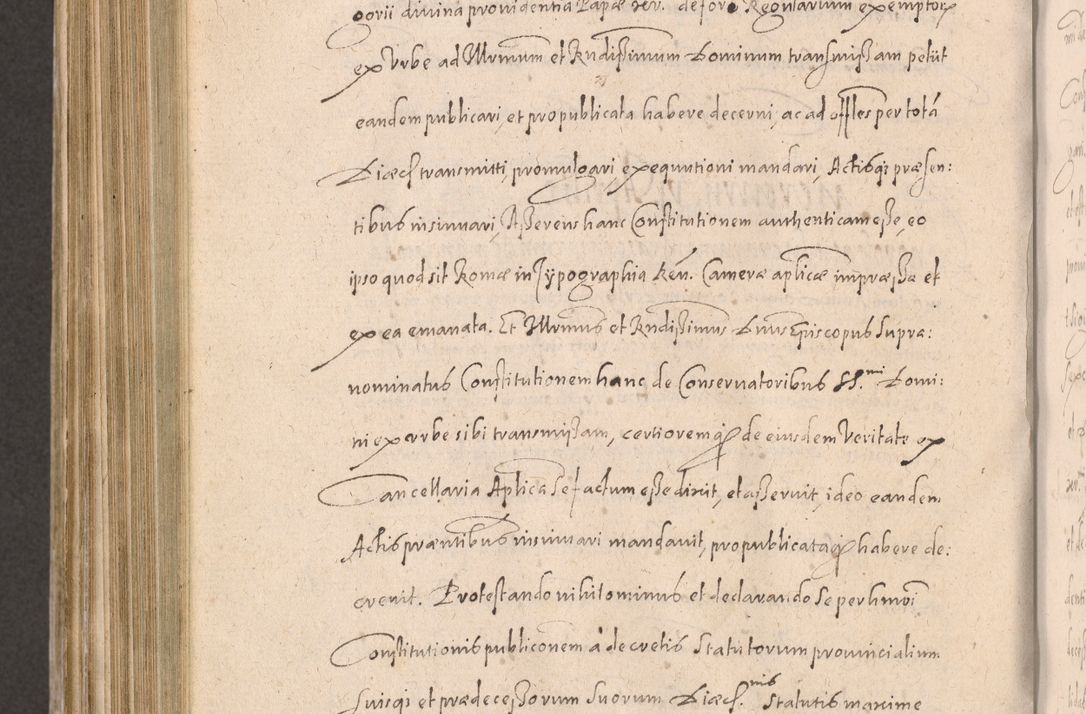 gorii divina providentia Papæ xv. de foro Regularium exemptor
ex Urbe ad Illrmum et Rndissimum Dominum transmissam petiit
eandem publicari, et pro publicata habere decerni, ac ad offles per totã
Diæcs transmitti, promulgari exequutioni mandari, Actisq; præsen:
tibus insinuari, Asserens hanc Constitutionem authenticam esse, eo
ipso quod sit Romæ in Typographia Reu. Cameræ aplicæ impræssa et
ex ea emanata. Et Illrmus et Rndissimus Dnus Episcopus supra:
nominatus Constitutionem hanc de Conservatoribus SS.mi Domi:
ni ex urbe sibi transmissam, certiorem q; de eiusdem veritate ex
Cancellaria Aplica se factum esse dixit, et asseruit, ideo eandem
Actis præntibus insinuari mandavit, pro publicata q; habere de:
crevit. Protestando nihilominus et declarando se per hmoi
Constitutionis publiconem a decretis Statutorum provincialium
suisq; et prædecessorum suorum Diæcs.nis statutis maxime